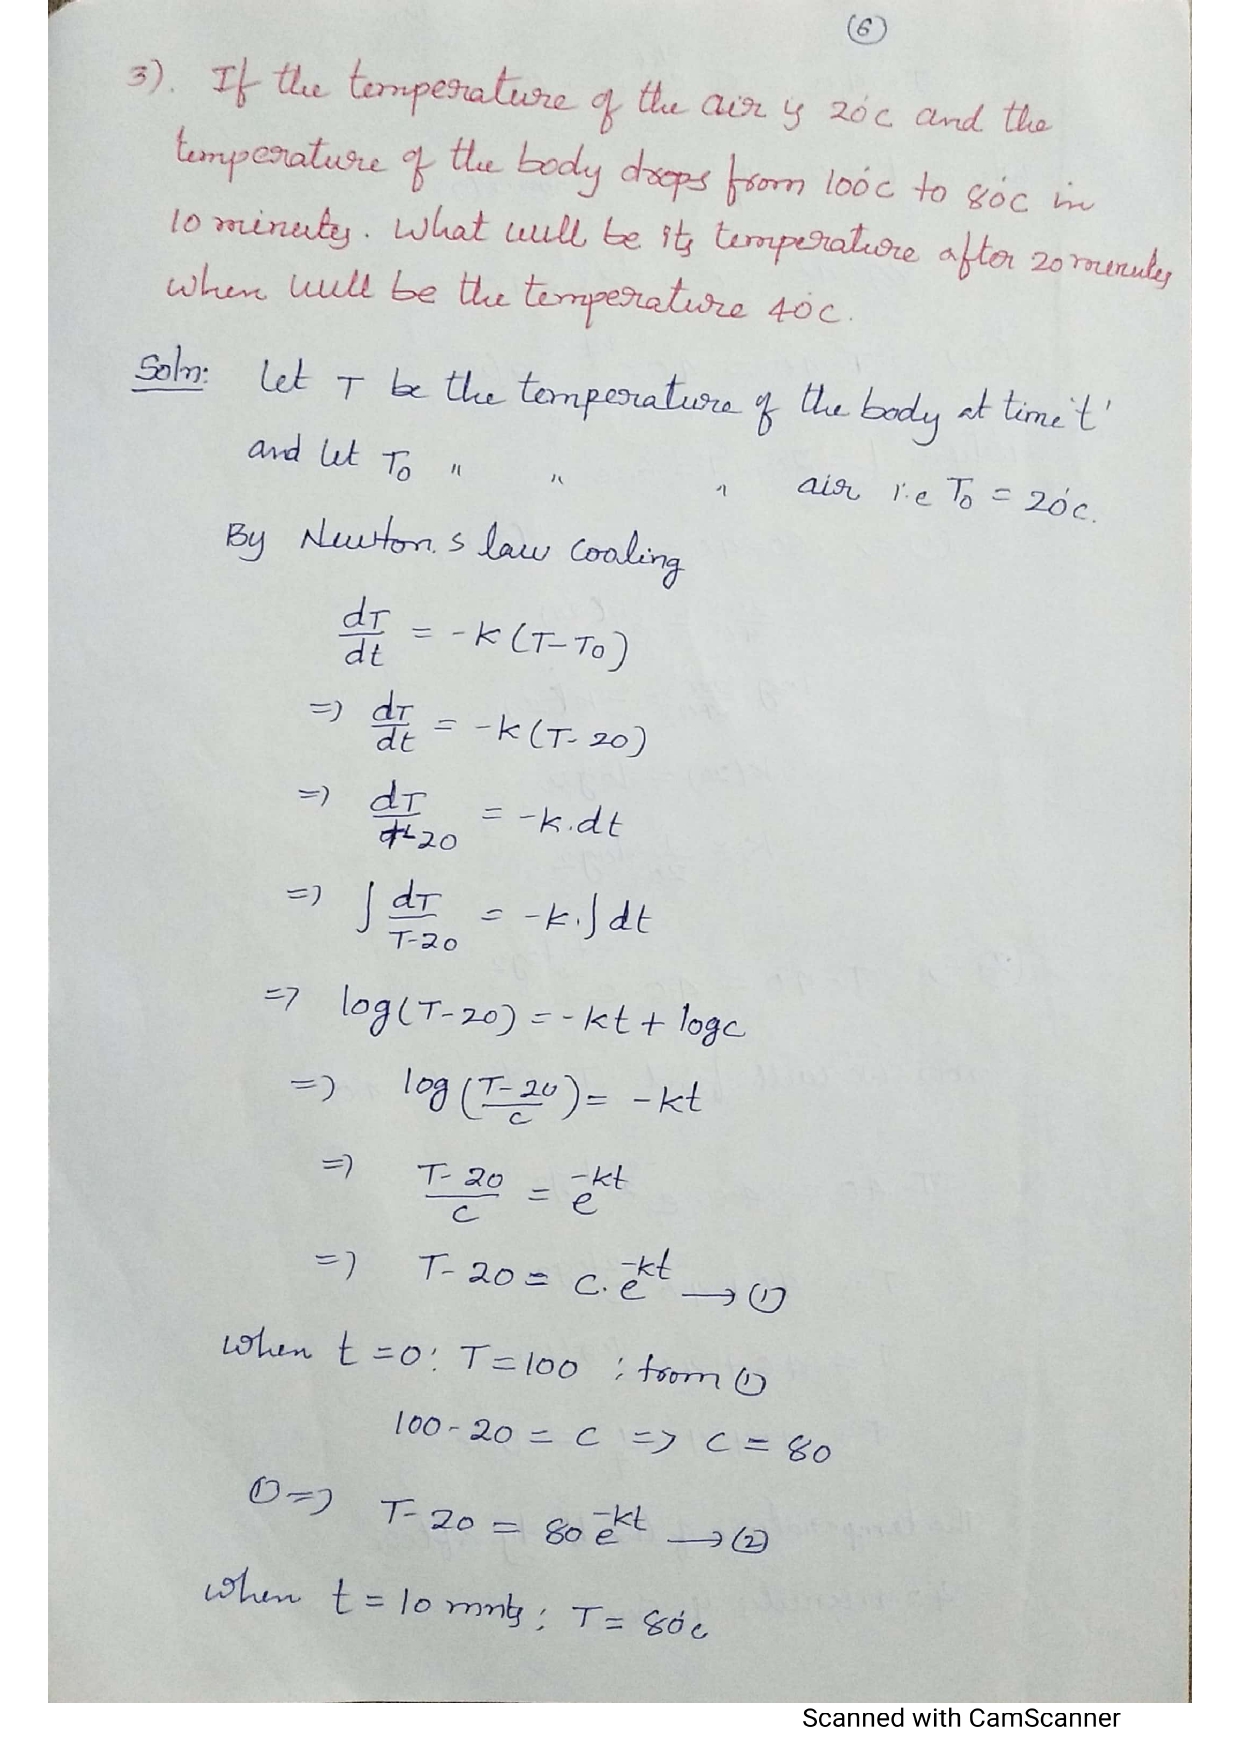 (6)
3). If the temperature of the air is 20°c and the
temperature of the body drops from 100°c to 80°c in
10 minutes. What will be its temperature after 20 minutes
when will be the temperature 40°c.
Soln: Let T be the temperature of the body at time 't'
and let T₀ " " " air i.e T₀ = 20°c.
By Newton's law cooling
dT/dt = -k(T-T₀)
=> dT/dt = -k(T-20)
=> dT/T-20 = -k.dt
=> ∫ dT/T-20 = -k.∫dt
=> log(T-20) = -kt + logc
=> log(T-20/c) = -kt
=> T-20/c = e^-kt
=> T-20 = c.e^-kt → (1)
when t=0: T=100 ; from (1)
100-20 = c => c = 80
(1) => T-20 = 80 e^-kt → (2)
when t = 10 mnts; T = 80°c
Scanned with CamScanner